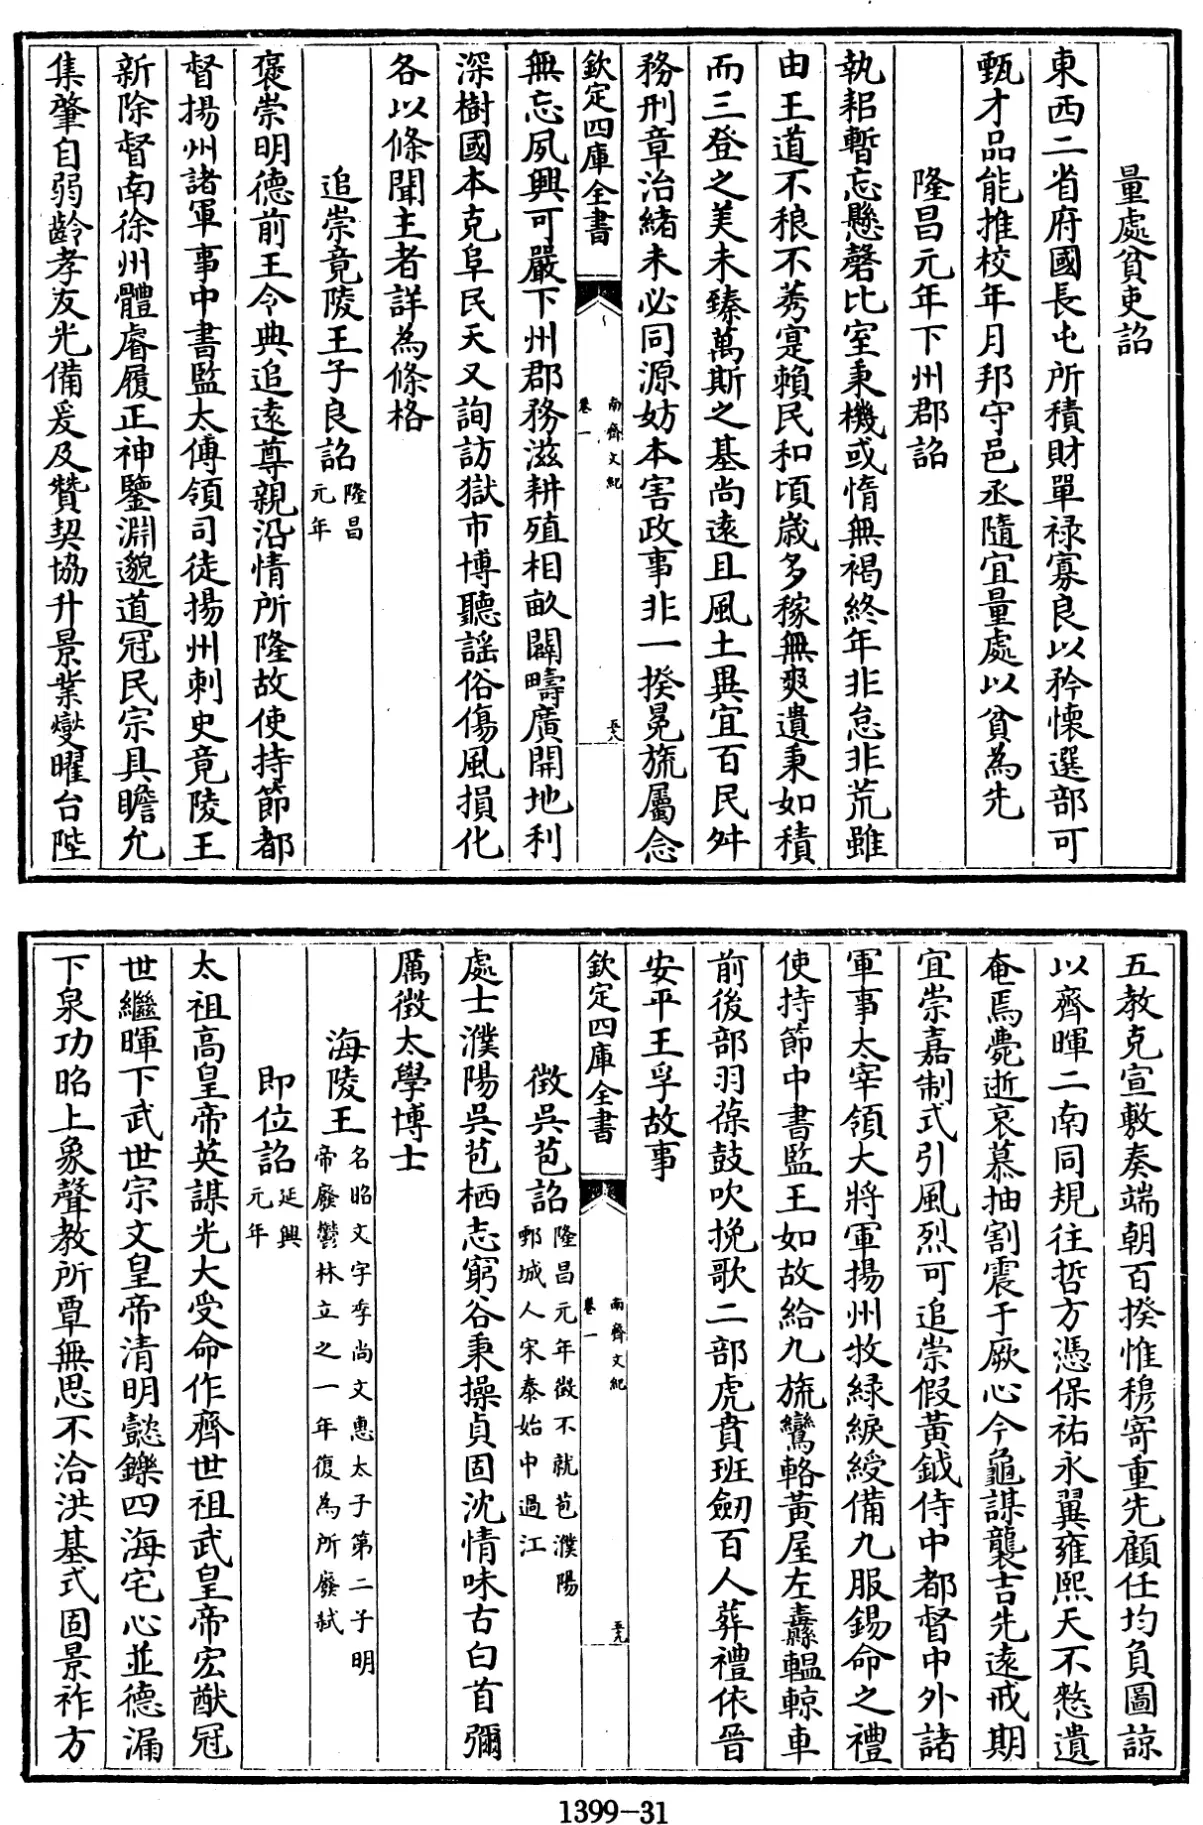 量處貧吏詔
東西二省府國長屯所積財單禄寡良以矜懷選部可
甄才品能推校年月邦守邑丞隨宜量處以貧為先
隆昌元年下州郡詔
執耜暫忘懸磬比室秉機或惰無褐終年非怠非荒雖
由王道不稂不莠寔頼民和頃歲多稼無爽遺秉如積
而三登之美未臻萬斯之基尚遠且風土異宜百民舛
務刑章治緒未必同源妨本害政事非一揆冕旒屬念
欽定四庫全書
南齊文紀
卷一
五八
無忘夙興可嚴下州郡務滋耕殖相畝闢疇廣開地利
深樹國本克阜民天又詢訪獄市博聽謡俗傷風損化
各以條聞主者詳為條格
追崇竟陵王子良詔隆昌元年
褒崇明德前王令典追遠尊親沿情所隆故使持節都
督揚州諸軍事中書監太傅領司徒揚州刺史竟陵王
新除督南徐州體睿履正神鑒淵邈道冠民宗具瞻允
集肇自弱齡孝友光備爰及贊契協升景業燮曜台陛
五教克宣敷奏端朝百揆惟穆寄重先顧任均負圖諒
以齊暉二南同規往哲方憑保祐永翼雍熙天不憗遺
奄焉薨逝哀慕抽割震于厥心今龜謀襲吉先遠戒期
宜崇嘉制式引風烈可追崇假黃鉞侍中都督中外諸
軍事太宰領大將軍揚州牧緑綟綬備九服錫命之禮
使持節中書監王如故給九旒鸞輅黃屋左纛轀輬車
前後部羽葆鼓吹挽歌二部虎賁班劒百人葬禮依晉
安平王孚故事
欽定四庫全書
南齊文紀
卷一
五九
徵吳苞詔隆昌元年徵不就苞濮陽鄄城人宋泰始中過江
處士濮陽吳苞栖志窮谷秉操貞固沈情味古白首彌
厲徵太學博士
海陵王名昭文字季尚文惠太子第二子明帝廢鬱林立之一年復為所廢弒
即位詔延興元年
太祖高皇帝英謀光大受命作齊世祖武皇帝宏猷冠
世繼暉下武世宗文皇帝清明懿鑠四海宅心並德漏
下泉功昭上象聲教所覃無思不洽洪基式固景祚方
1399-31